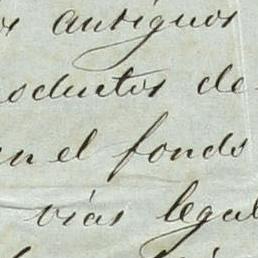 os antiguos
oductos de
en el fondo
vias legal